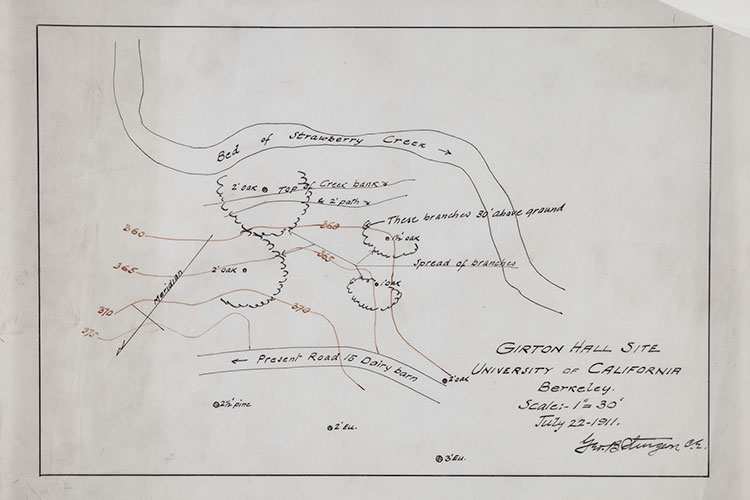 Bed of Strawberry Creek
2' oak
Top of Creek bank
& 2' path
These branches 30' above ground
360
360
1½' oak
365
365
Spread of branches
2' oak
1' oak
Meridian
370
370
375
Present Road to Dairy barn
2' oak
2½' pine
2' Eu.
3' Eu.
GIRTON HALL SITE
UNIVERSITY OF CALIFORNIA
Berkeley.
Scale:- 1" = 30'
July 22-1911.
Geo. B. Sturgen C.E.